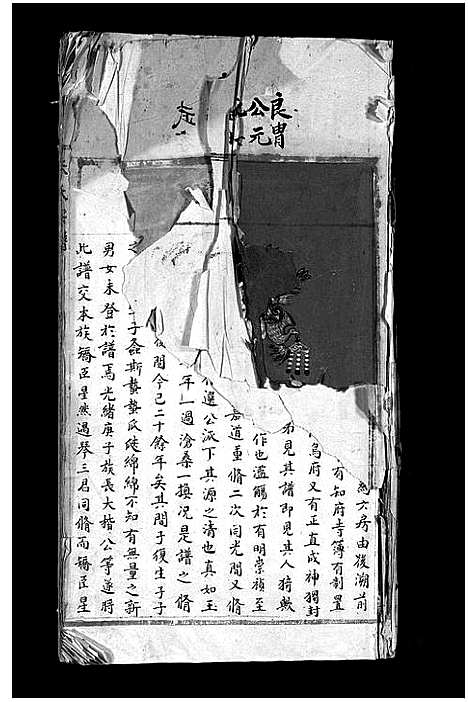 良冑
公元
房由後湖前
有知府寺簿有制置
府又有正直成神獨封
見其譜即見其人猗歟
作也濫觴於有明崇禎至
道重脩二次同光間又脩
選公派下其源之清也真如玉
年一過滄桑一換況是譜之脩
後閱今已二十餘年矣其間子復生子子
子螽斯蟄蟄瓜瓞綿綿不知有無量之新
男女未登於譜焉光緒庚子族長大楷公等遂將
此譜交本族矞臣星然遇琴三君同脩而矞臣星